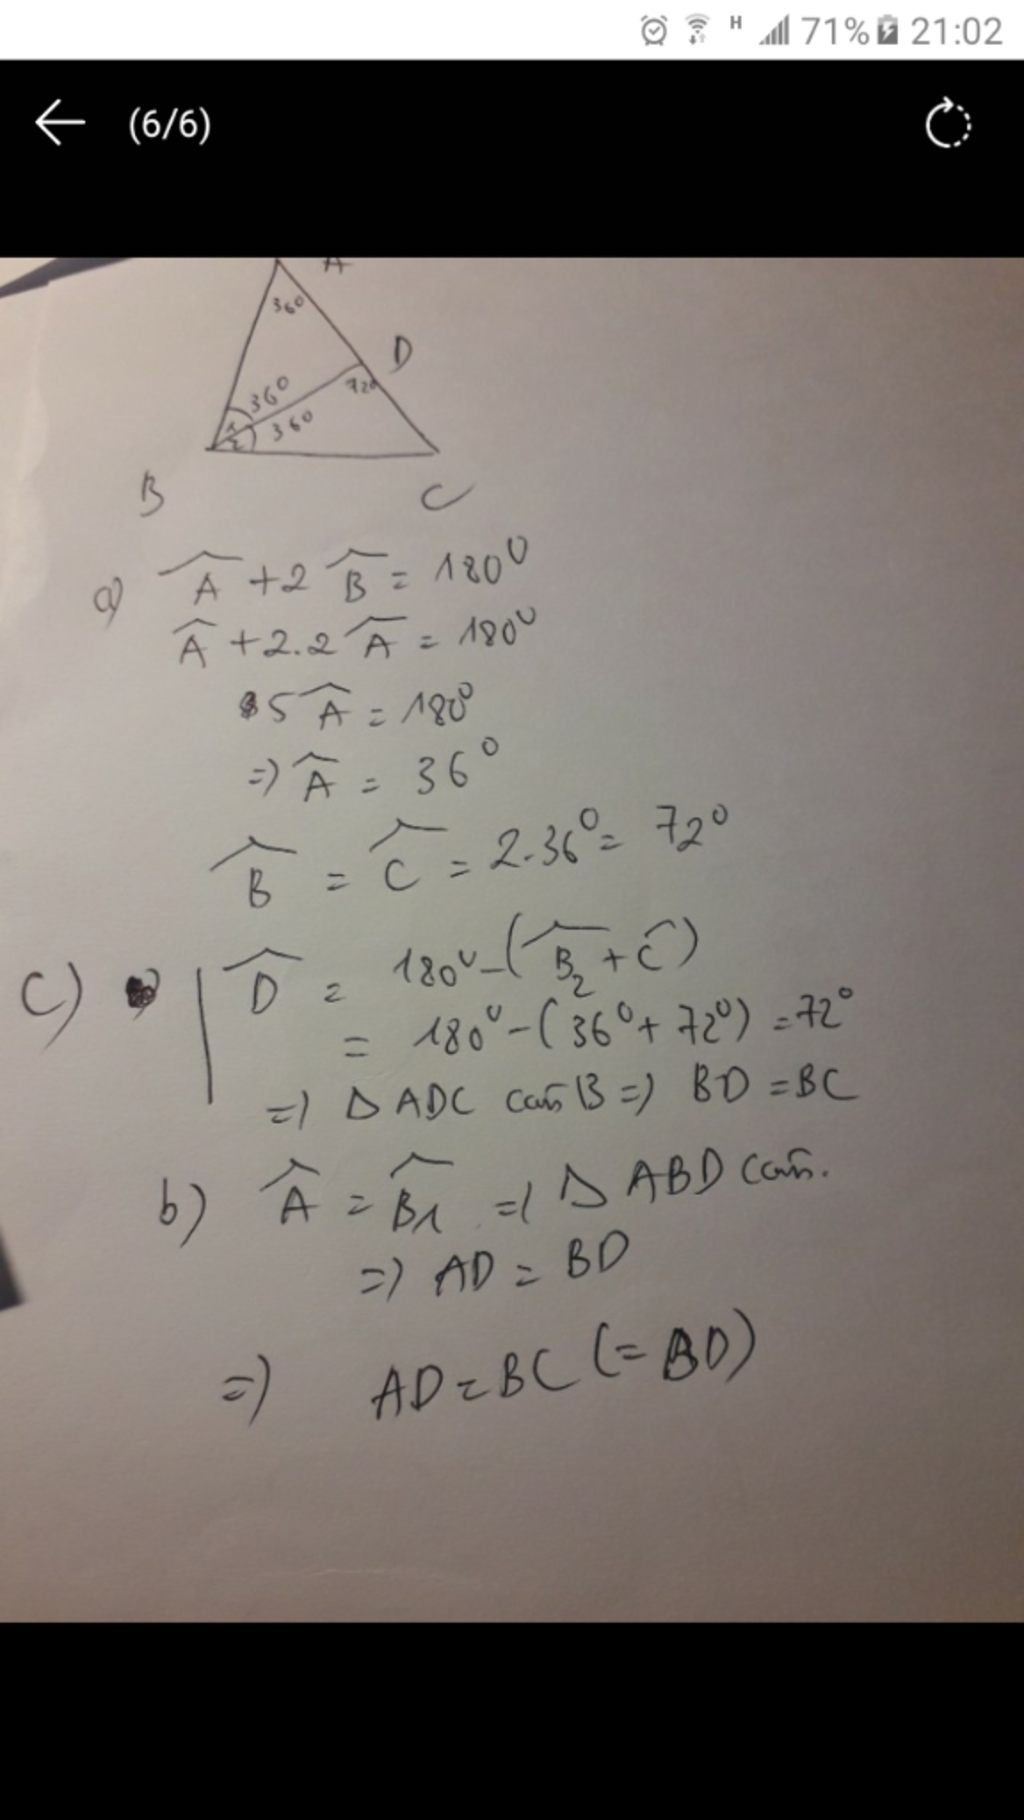 H 71% 21:02
(6/6)
A
36⁰
D
72⁰
36⁰
1
36⁰
2
B
C
a) Â + 2 B̂ = 180⁰
Â + 2.2 Â = 180⁰
5 Â = 180⁰
=) Â = 36⁰
B̂ = Ĉ = 2.36⁰ = 72⁰
C) D̂ = 180⁰ - (B̂₂ + Ĉ)
= 180⁰ - (36⁰ + 72⁰) = 72⁰
=) Δ ADC cân B =) BD = BC
b) Â = B̂₁ =) Δ ABD cân.
=) AD = BD
=) AD = BC (= BD)